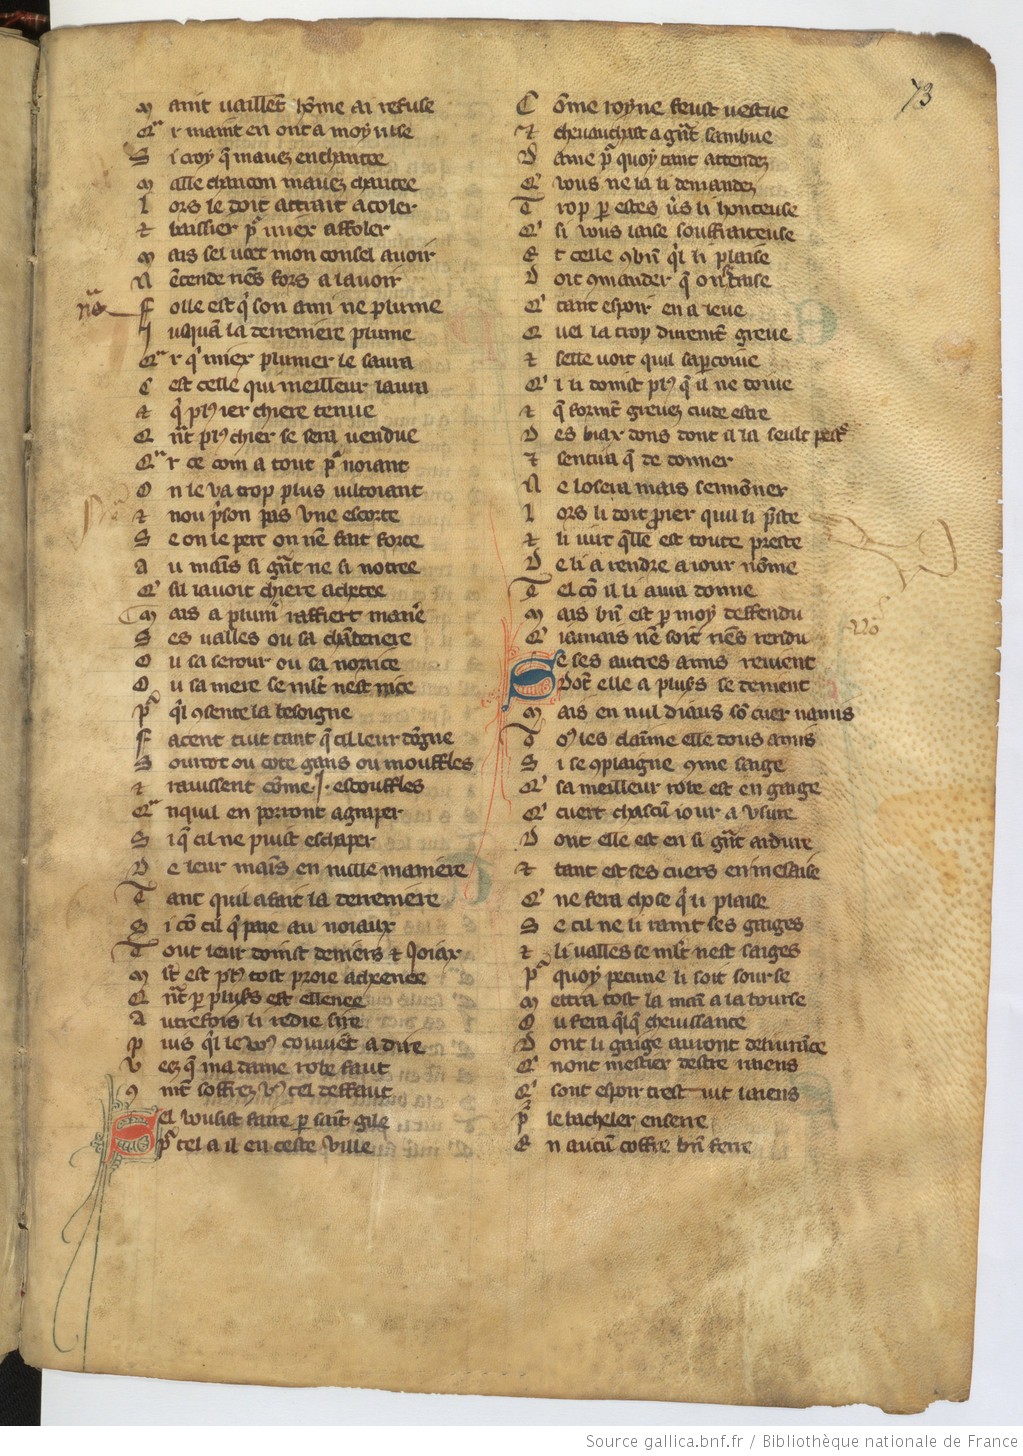 73
M aint vaillēt hōme ai refuse
Qᵃr maint en ont a moy vise
S i croy q̄ mauez enchantee
M alle chancon mauez chantee
L ors le doit attrait acoler
⁊ baissier pᵒ miex affoler
M ais sel veet mon consel auoir
N ētende nēs fors a lauoir
nōᵃ
F olle est qⁱ son ami ne plume
J usquā la derreniere plume
Qᵃr qⁱ miex plumer le saura
C est celle qui meilleur laura
⁊ qⁱ plꝰ ier chiere tenue
Q ñt plꝰ chier se sera vendue
Qᵃr ce com a tout pᵒ noiant
O n le va trop plus viltoiant
⁊ nou p̄son pas vne escorce
S e on le pert on nē fait force
A u mains si gñt ne si notree
Qⁱ sil lauoit chiere achetee
M ais a plumʳ raffiert manʳe
S es valles ou sa chāberiere
O u sa serour ou sa norrice
O u sa mere se mlt nest nice
Pᵒ qⁱl ꝯsente la besoigne
F acent tuit tant q̄ cil leur dōgne
S ourcot ou cote gans ou mouffles
⁊ rauissent cōme .j. escouffles
Qᵃ nquil en porront agraper
S i q̄ cil ne puist eschaper
D e leur mais en nulle maniere
T ant quil a fait la derreniere
S i cō cil qⁱ paie au noiaux
T out leur donist deniers ⁊ ioiax
M lt est plꝰ tost proie acheuee
Q ñt ꝑ plusrs est leuee
A utrefois li redie sire
P uis qⁱl le vꝰ couuēt a dire
V eez q̄ ma dame robe faut
ꝯ mt soffrez vꝰ tel deffaut
S el vousist faire ꝑ saint gile
Pᵒ tel a il en ceste ville
C ōme royne feust vestue
⁊ cheuauchast a gñt sambue
D ame pᵒ quoy tant attendez
Qⁱ vous ne la li demandez
T rop ꝑ estes vꝰs li honteuse
Qⁱ si vous laise souffraiteuse
E t celle ꝯbn̄ qⁱl li plaise
D oit ꝯmander q̄ on se taise
Qⁱ tant espoir en a leue
Q uel la croy durement greue
⁊ selle voit quil saꝑcoiue
Qⁱ l li donist plꝰ q̄ il ne doiue
⁊ q̄ forment greuez cuide estre
D es biax dons dont a la seult pestʳ
⁊ sentira q̄ de donner
N e losera mais sermōner
L ors li doit prier quil li p̄ste
⁊ li iurt q̄lle est toute preste
D e li a rendre a iour nōme
T el cō il li aura donne
M ais bn̄ est ꝑ moy deffendu
Qⁱ iamais nē soit nēs rendu
nō
S e ses autres amis reuient
Dōt elle a plusrs se deuient
M ais en nul diaus sō cuer na mis
T oꝰ les claīme elle tous amis
S i se ꝯplaigne ꝯme saige
Qⁱ sa meilleur robe est en gaige
Qⁱ cuert chascū iour a vsure
D ont elle est en si gñt ardure
⁊ tant est ses cuers en mesaise
Qⁱ ne fera chose qⁱ li plaise
S e cil ne li raint ses gaiges
⁊ li valles se mlt nest saiges
Pᵒ quoy pecune li soit sourse
M ettra tost la mai a la bourse
O u fera q̄lq̄ cheuissance
D ont li gaige auront deliurāce
Qⁱ nont mestier destre raiens
Qⁱ sont espoir trestuit laiens
Pᵒ le bacheler enserre
E n aucū coffre bn̄ ferre
Source gallica.bnf.fr / Bibliothèque nationale de France